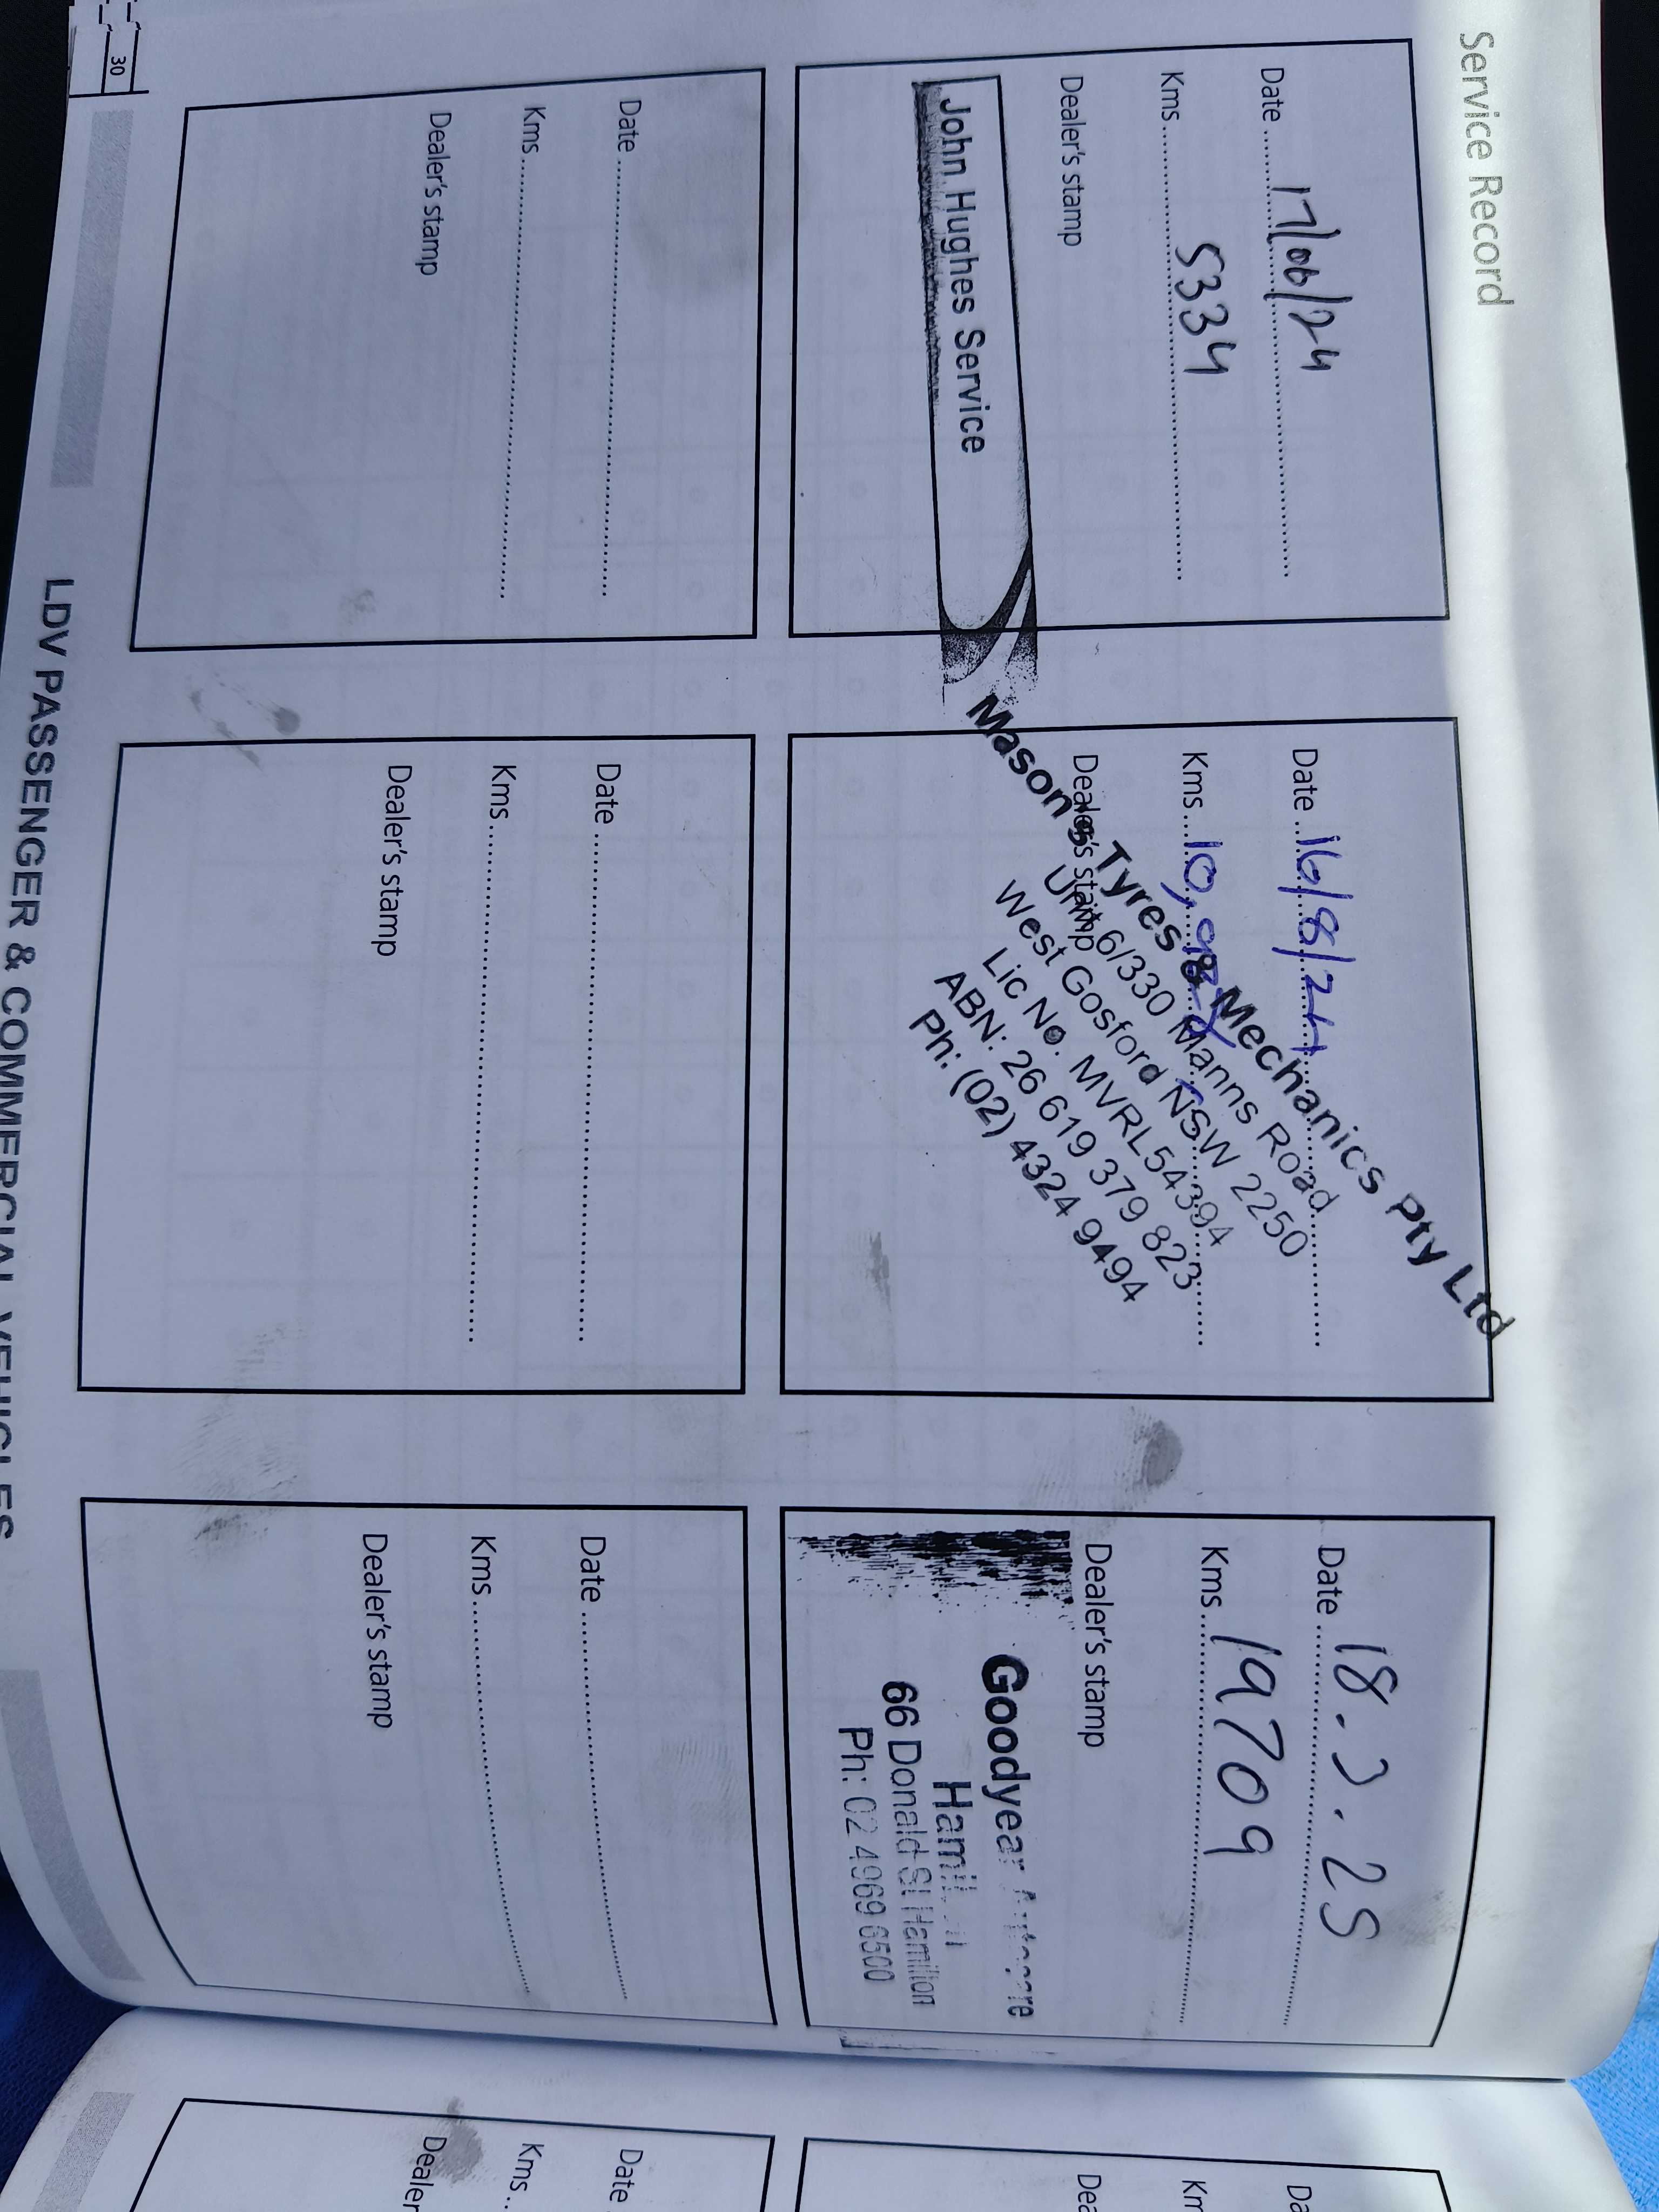 Service Record
Date 17/06/24
Kms 5334
Dealer's stamp
John Hughes Service
Date 16/8/24
Kms
Dealer's stamp
Mason's Tyres & Mechanics Pty Ltd
Unit 6/330 Manns Road
West Gosford NSW 2250
Lic No. MVRL54394
ABN: 26 619 379 823
Ph: (02) 4324 9494
Date 18.3.25
Kms 19709
Dealer's stamp
Goodyear Autocare
Hamilton
66 Donald St Hamilton
Ph: 02 4969 6500
Date
Kms
Dealer's stamp
Date
Kms
Dealer's stamp
Date
Kms
Dealer's stamp
30
LDV PASSENGER & COMMERCIAL VEHICLES
Date
Kms